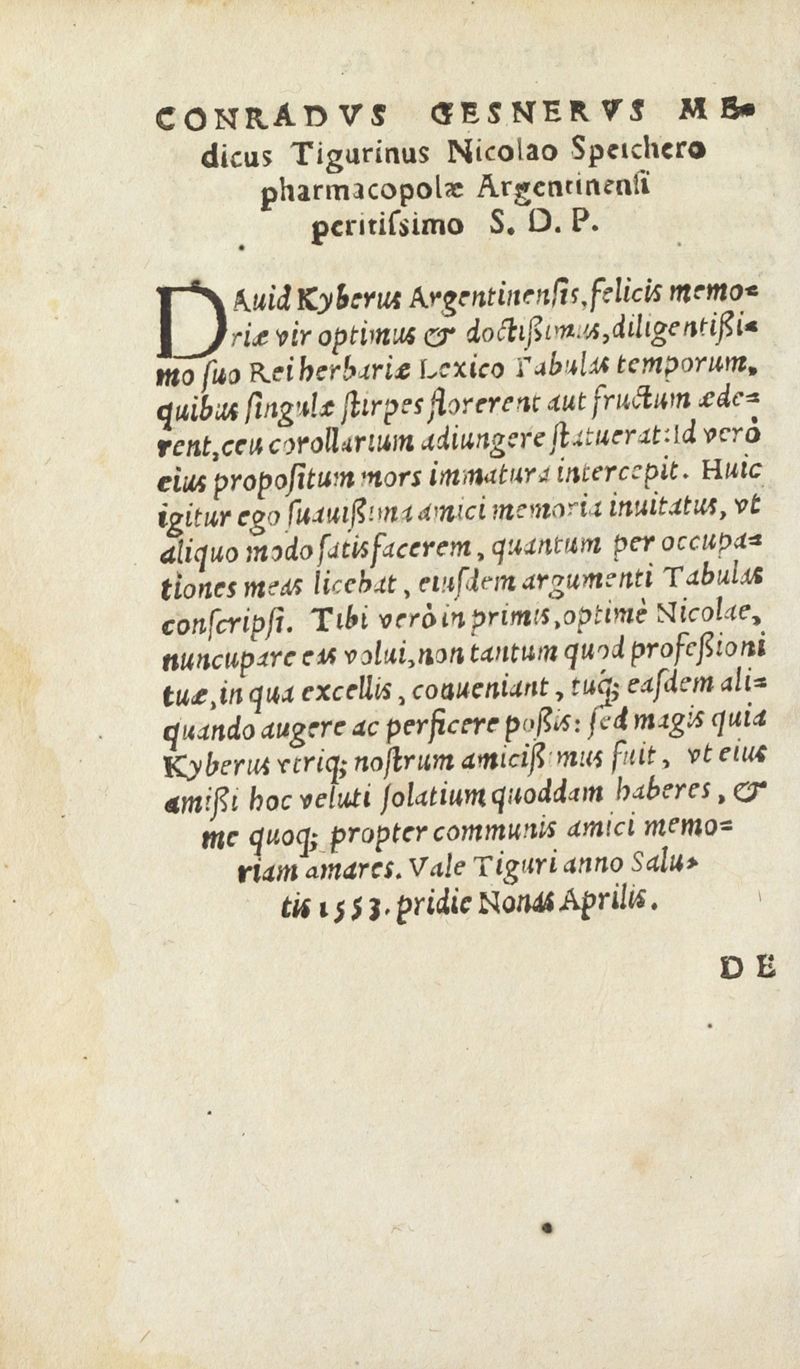 CONRADVS GESNERVS ME-
dicus Tigurinus Nicolao Speichero
pharmacopolæ Argentinensi
peritiſsimo S. D. P.
DAuid Kyberus Argentinenſis, felicis memo-
riæ vir optimus & doctißimus, diligentißi-
mo ſuo Rei herbariæ Lexico Tabulas temporum,
quibus ſingulæ ſtirpes florerent aut fructum æde-
rent, ceu corollarium adiungere ſtatuerat: Id verò
eius propoſitum mors immatura intercepit. Huic
igitur ego ſuauißima amici memoria inuitatus, vt
aliquo modo ſatisfacerem, quantum per occupa-
tiones meas licebat, eiuſdem argumenti Tabulas
conſcripſi. Tibi verò in primis, optimè Nicolae,
nuncupare eas volui, non tantum quod profeßioni
tuæ, in qua excellis, conueniant, tuq; eaſdem ali-
quando augere ac perficere poßis: ſed magis quia
Kyberus vtriq; noſtrum amicißimus fuit, vt eius
amißi hoc veluti ſolatium quoddam haberes, &
me quoq; propter communis amici memo-
riam amares. Vale Tiguri anno Salu-
tis 1553. pridie Nonas Aprilis.
DE